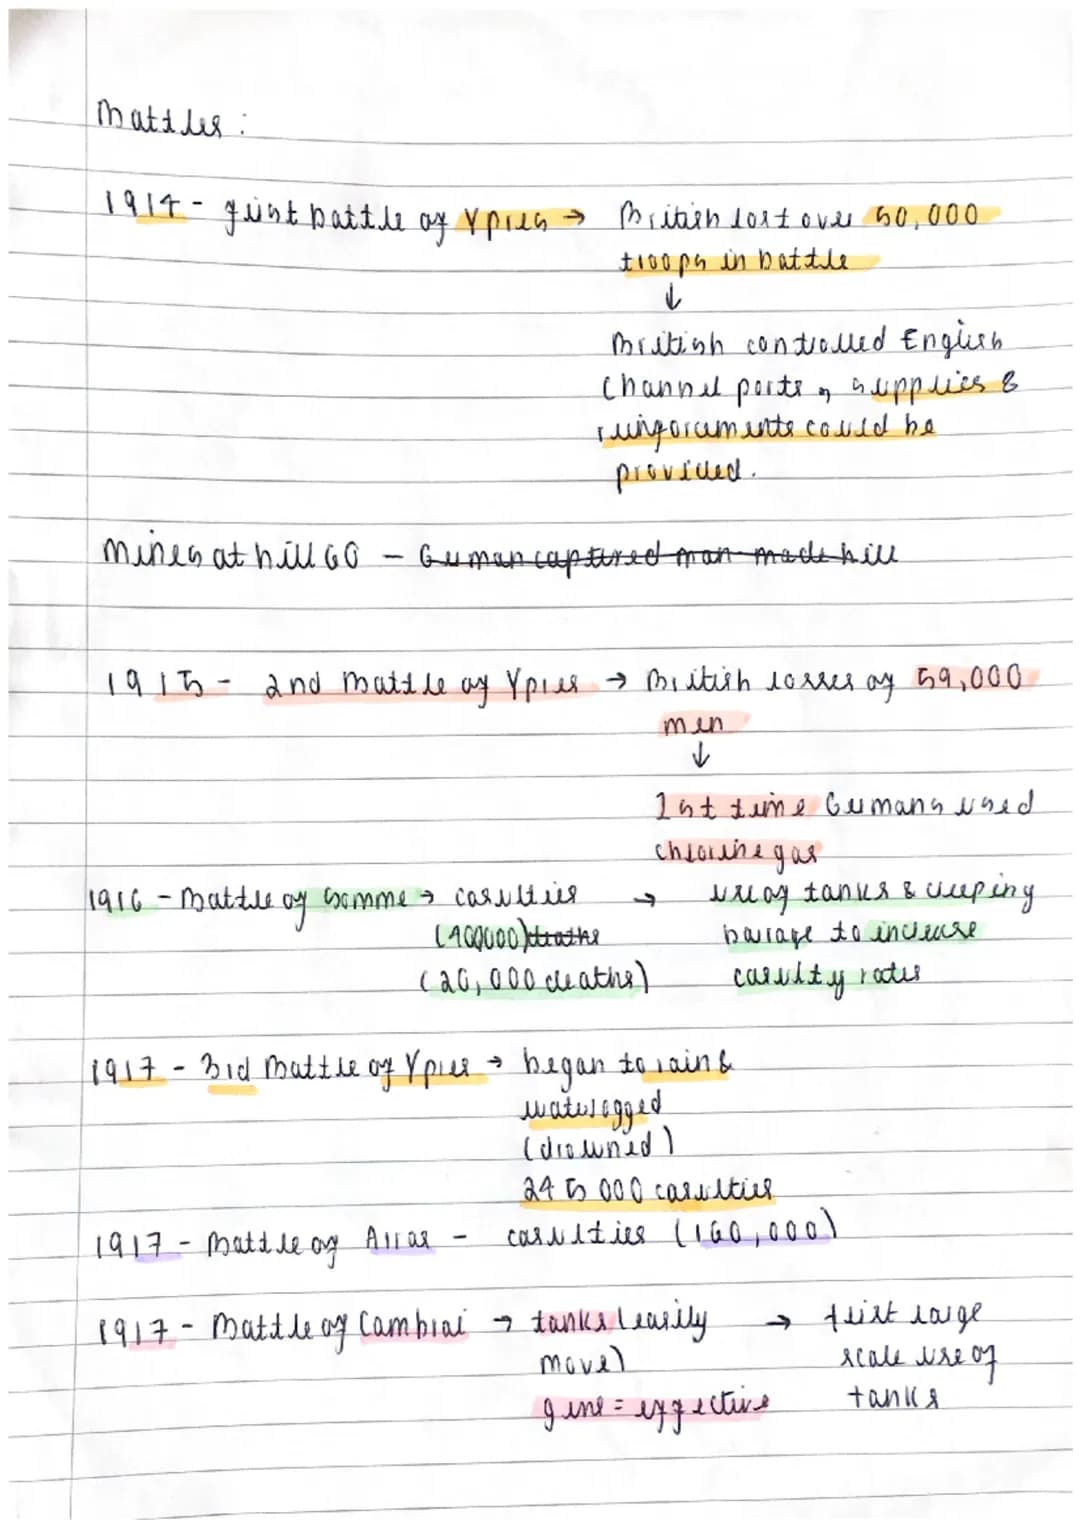 Battles:
1914 - first battle of Ypres → British lost over 50,000
troops in battle
↓
British controlled English
Channel ports, supplies &
reinforcements could be
provided.
Mines at hill 60 - German captured man-made hill
1915 - 2nd Battle of Ypres → British losses of 59,000
men
↓
1st time Germans used
chlorine gas
1916 - Battle of Somme → casulties → use of tanks & creeping
(400000) deaths barage to increase
(20,000 deaths) casulty rates
1917 - 3rd Battle of Ypres → began to rain &
waterlogged
(drowned)
245 000 casulties
1917 - Battle of Arras - casulties (160,000)
1917 - Battle of Cambrai → tanks (easily → first large
move) scale use of
= effective tanks